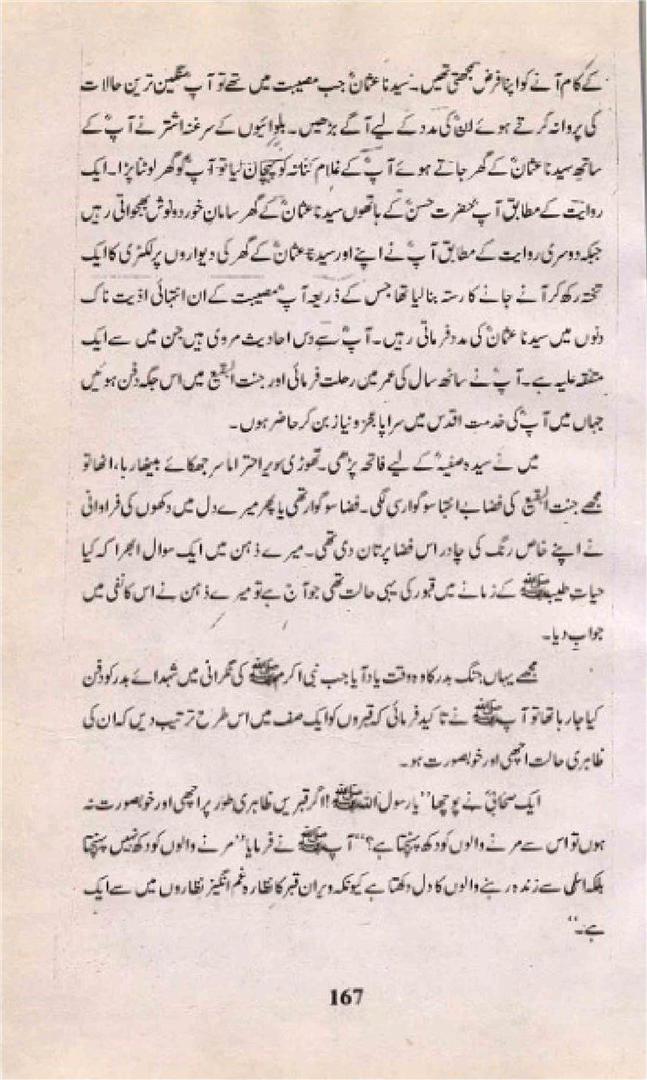 کے کام آنے کو اپنا فرض سمجھتی تھیں۔ سیدنا عثمانؓ جب مصیبت میں تھے تو آپ سنگین ترین حالات
کی پروا نہ کرتے ہوئے ان کی مدد کے لیے آگے بڑھیں۔ بلوائیوں کے سرغنہ اشتر نے آپؓ کے
ساتھ سیدنا عثمانؓ کے گھر جاتے ہوئے آپؓ کے غلام کنانہ کو پہچان لیا تو آپؓ کو گھر لوٹنا پڑا۔ ایک
روایت کے مطابق آپؓ حضرت حسنؓ کے ہاتھوں سیدنا عثمانؓ کے گھر سامان خورد و نوش بھجواتی رہیں
جبکہ دوسری روایت کے مطابق آپؓ نے اپنے اور سیدنا عثمانؓ کے گھر کی دیواروں پر لکڑی کا ایک
تختہ رکھ کر آنے جانے کا رستہ بنا لیا تھا جس کے ذریعہ آپؓ مصیبت کے ان انتہائی اذیت ناک
دنوں میں سیدنا عثمانؓ کی مدد فرماتی رہیں۔ آپؓ سے دس احادیث مروی ہیں جن میں سے ایک
متفقہ علیہ ہے۔ آپؓ نے ساٹھ سال کی عمر میں رحلت فرمائی اور جنت البقیع میں اس جگہ دفن ہوئیں
جہاں میں آپؓ کی خدمت اقدس میں سراپا عجز و نیاز بن کر حاضر ہوں۔
میں نے سیدہ صفیہؓ کے لیے فاتحہ پڑھی۔ تھوڑی دیر احتراماً سر جھکائے بیٹھا رہا، اٹھا تو
مجھے جنت البقیع کی فضا بے انتہا سوگوار سی لگی۔ فضا سوگوار تھی یا پھر میرے دل میں دکھوں کی فراوانی
نے اپنے خاص رنگ کی چادر اس فضا پر تان دی تھی۔ میرے ذہن میں ایک سوال ابھرا کہ کیا
حیات طیبہ ﷺ کے زمانے میں قبور کی یہی حالت تھی جو آج ہے تو میرے ذہن نے اس کا نفی میں
جواب دیا۔
مجھے یہاں جنگ بدر کا وہ وقت یاد آیا جب نبی اکرم ﷺ کی نگرانی میں شہدائے بدر کو دفن
کیا جا رہا تھا تو آپ ﷺ نے تاکید فرمائی کہ قبروں کو ایک صف میں اس طرح ترتیب دیں کہ ان کی
ظاہری حالت اچھی اور خوبصورت ہو۔
ایک صحابیؓ نے پوچھا ’’یا رسول اللہ ﷺ! اگر قبریں ظاہری طور پر اچھی اور خوبصورت نہ
ہوں تو اس سے مرنے والوں کو دکھ پہنچتا ہے؟‘‘ آپ ﷺ نے فرمایا ’’مرنے والوں کو دکھ نہیں پہنچتا
بلکہ اس سے زندہ رہنے والوں کا دل دکھتا ہے کیونکہ ویران قبر کا نظارہ غم انگیز نظاروں میں سے ایک
ہے۔‘‘
167